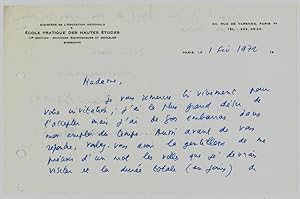 MINISTÈRE DE L'ÉDUCATION NATIONALE
ÉCOLE PRATIQUE DES HAUTES ÉTUDES
VIe SECTION - SCIENCES ÉCONOMIQUES ET SOCIALES
SORBONNE
RUE DE VARENNE, PARIS 7e
TÉL.
PARIS, LE 1 Fév 1972
Madame,
je vous remercie bien vivement pour
votre invitation, j'ai le plus grand désir de
l'accepter mais j'ai de gros embarras dans
mon emploi du temps. Aussi avant de vous
répondre, voulez-vous avoir la gentillesse de me
préciser d'un mot les villes que je devrais
visiter et la durée totale (en jours) du